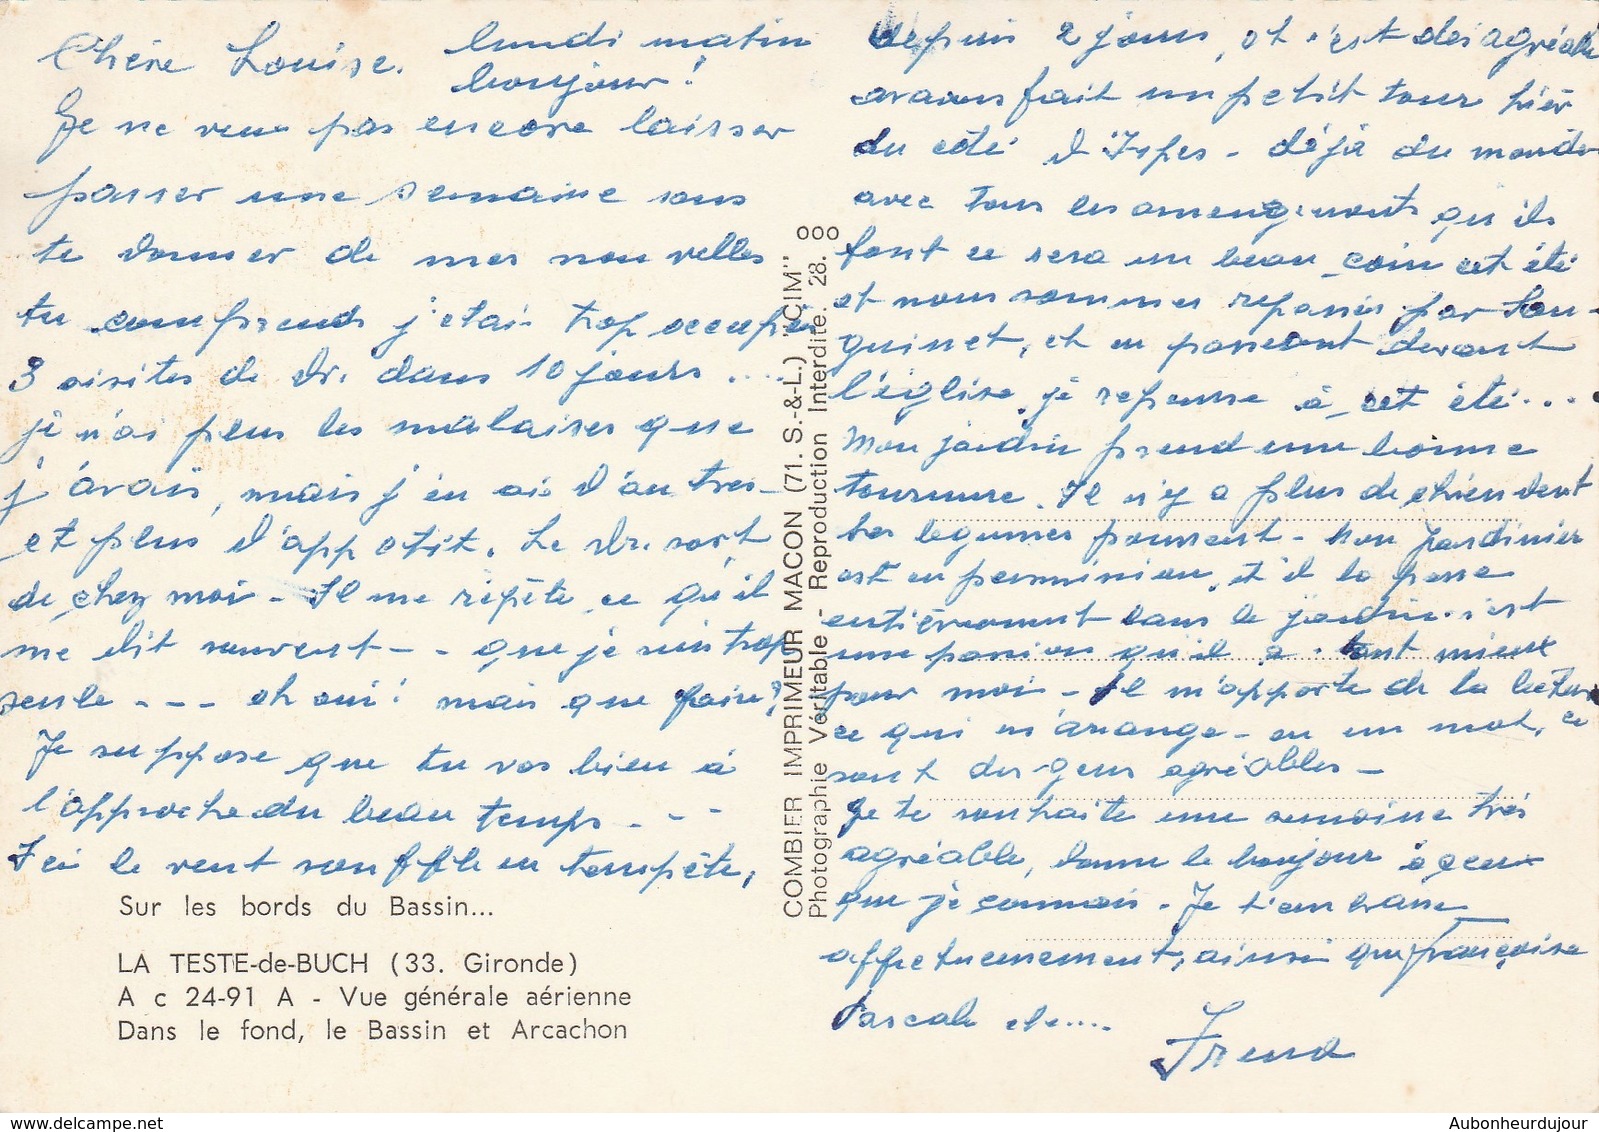 Chère Louise. lundi matin
bonjour!
Je ne veux pas encore laisser
passer une semaine sans
te donner de mes nouvelles
tu comprends j'étais trop occupée
3 visites de Dr. dans 10 jours ....
je n'ai plus les malaises que
j'avais, mais j'en ai d'autres -
et plus d'appétit. Le Dr. sort
de chez moi - Il me répète ce qu'il
me dit souvent - - que je suis trop
seule - - - eh oui! mais que faire?
Je suppose que tu vas bien à
l'approche du beau temps - - -
Ici le vent souffle en tempête,
depuis 2 jours, et c'est désagréable
avons fait un petit tour hier
du côté d'Ispes - déjà du monde
avec tous les amengements qu'ils
font ce sera un beau coin cet été
et nous sommes repassés par San-
guinet, et en passant devant
l'église, je repense à cet été....
Mon jardin prend une bonne
tournure. Il n'y a plus de chiendent
les legumes poussent - Mon jardinier
est en permission, et il la passe
entièrement dans le jardin. c'est
une passion qu'il a. tant mieux
pour moi - Il m'apporte de la lecture
ce qui m'arrange - en un mot, ce
sont des gens agréables -
Je te souhaite une semaine très
agréable, donne le bonjour à ceux
que je connais - Je t'embrasse
affectueusement, ainsi que Françoise
Pascale etc....
Irena
Sur les bords du Bassin...
LA TESTE-de-BUCH (33. Gironde)
A c 24-91 A - Vue générale aérienne
Dans le fond, le Bassin et Arcachon
COMBIER IMPRIMEUR MACON (71. S.-&-L.) "CIM"
Photographie Véritable - Reproduction Interdite. 28.
Aubonheurdujour